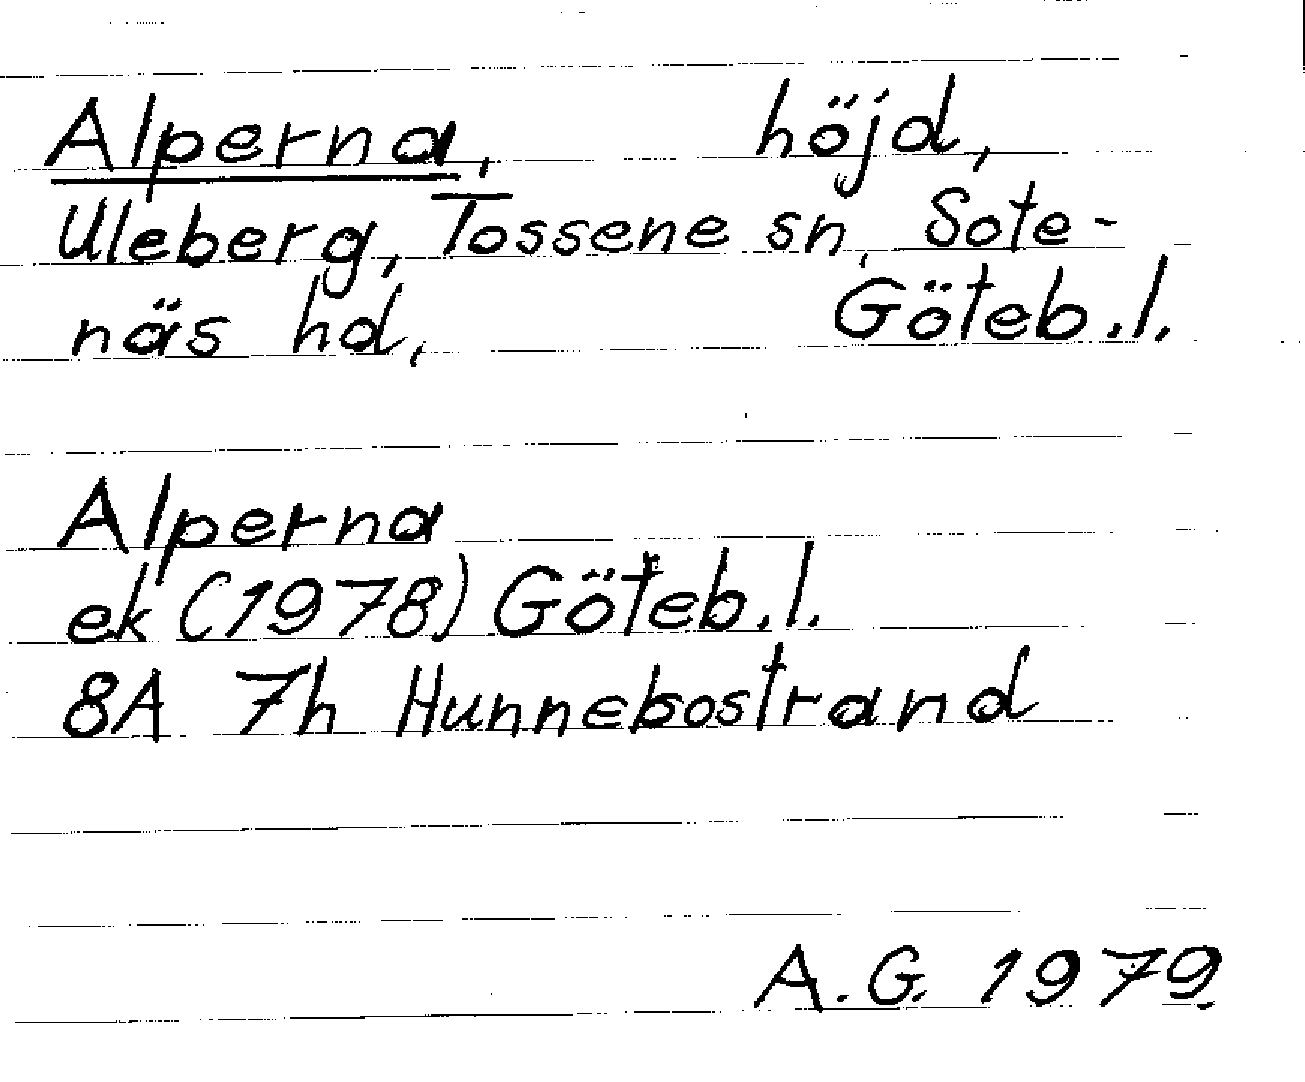 Alperna, höjd,
Uleberg, Tossene sn, Sote-
näs hd, Göteb.l.
Alperna
ek (1978) Göteb.l.
8A 7h Hunnebostrand
A.G. 1979